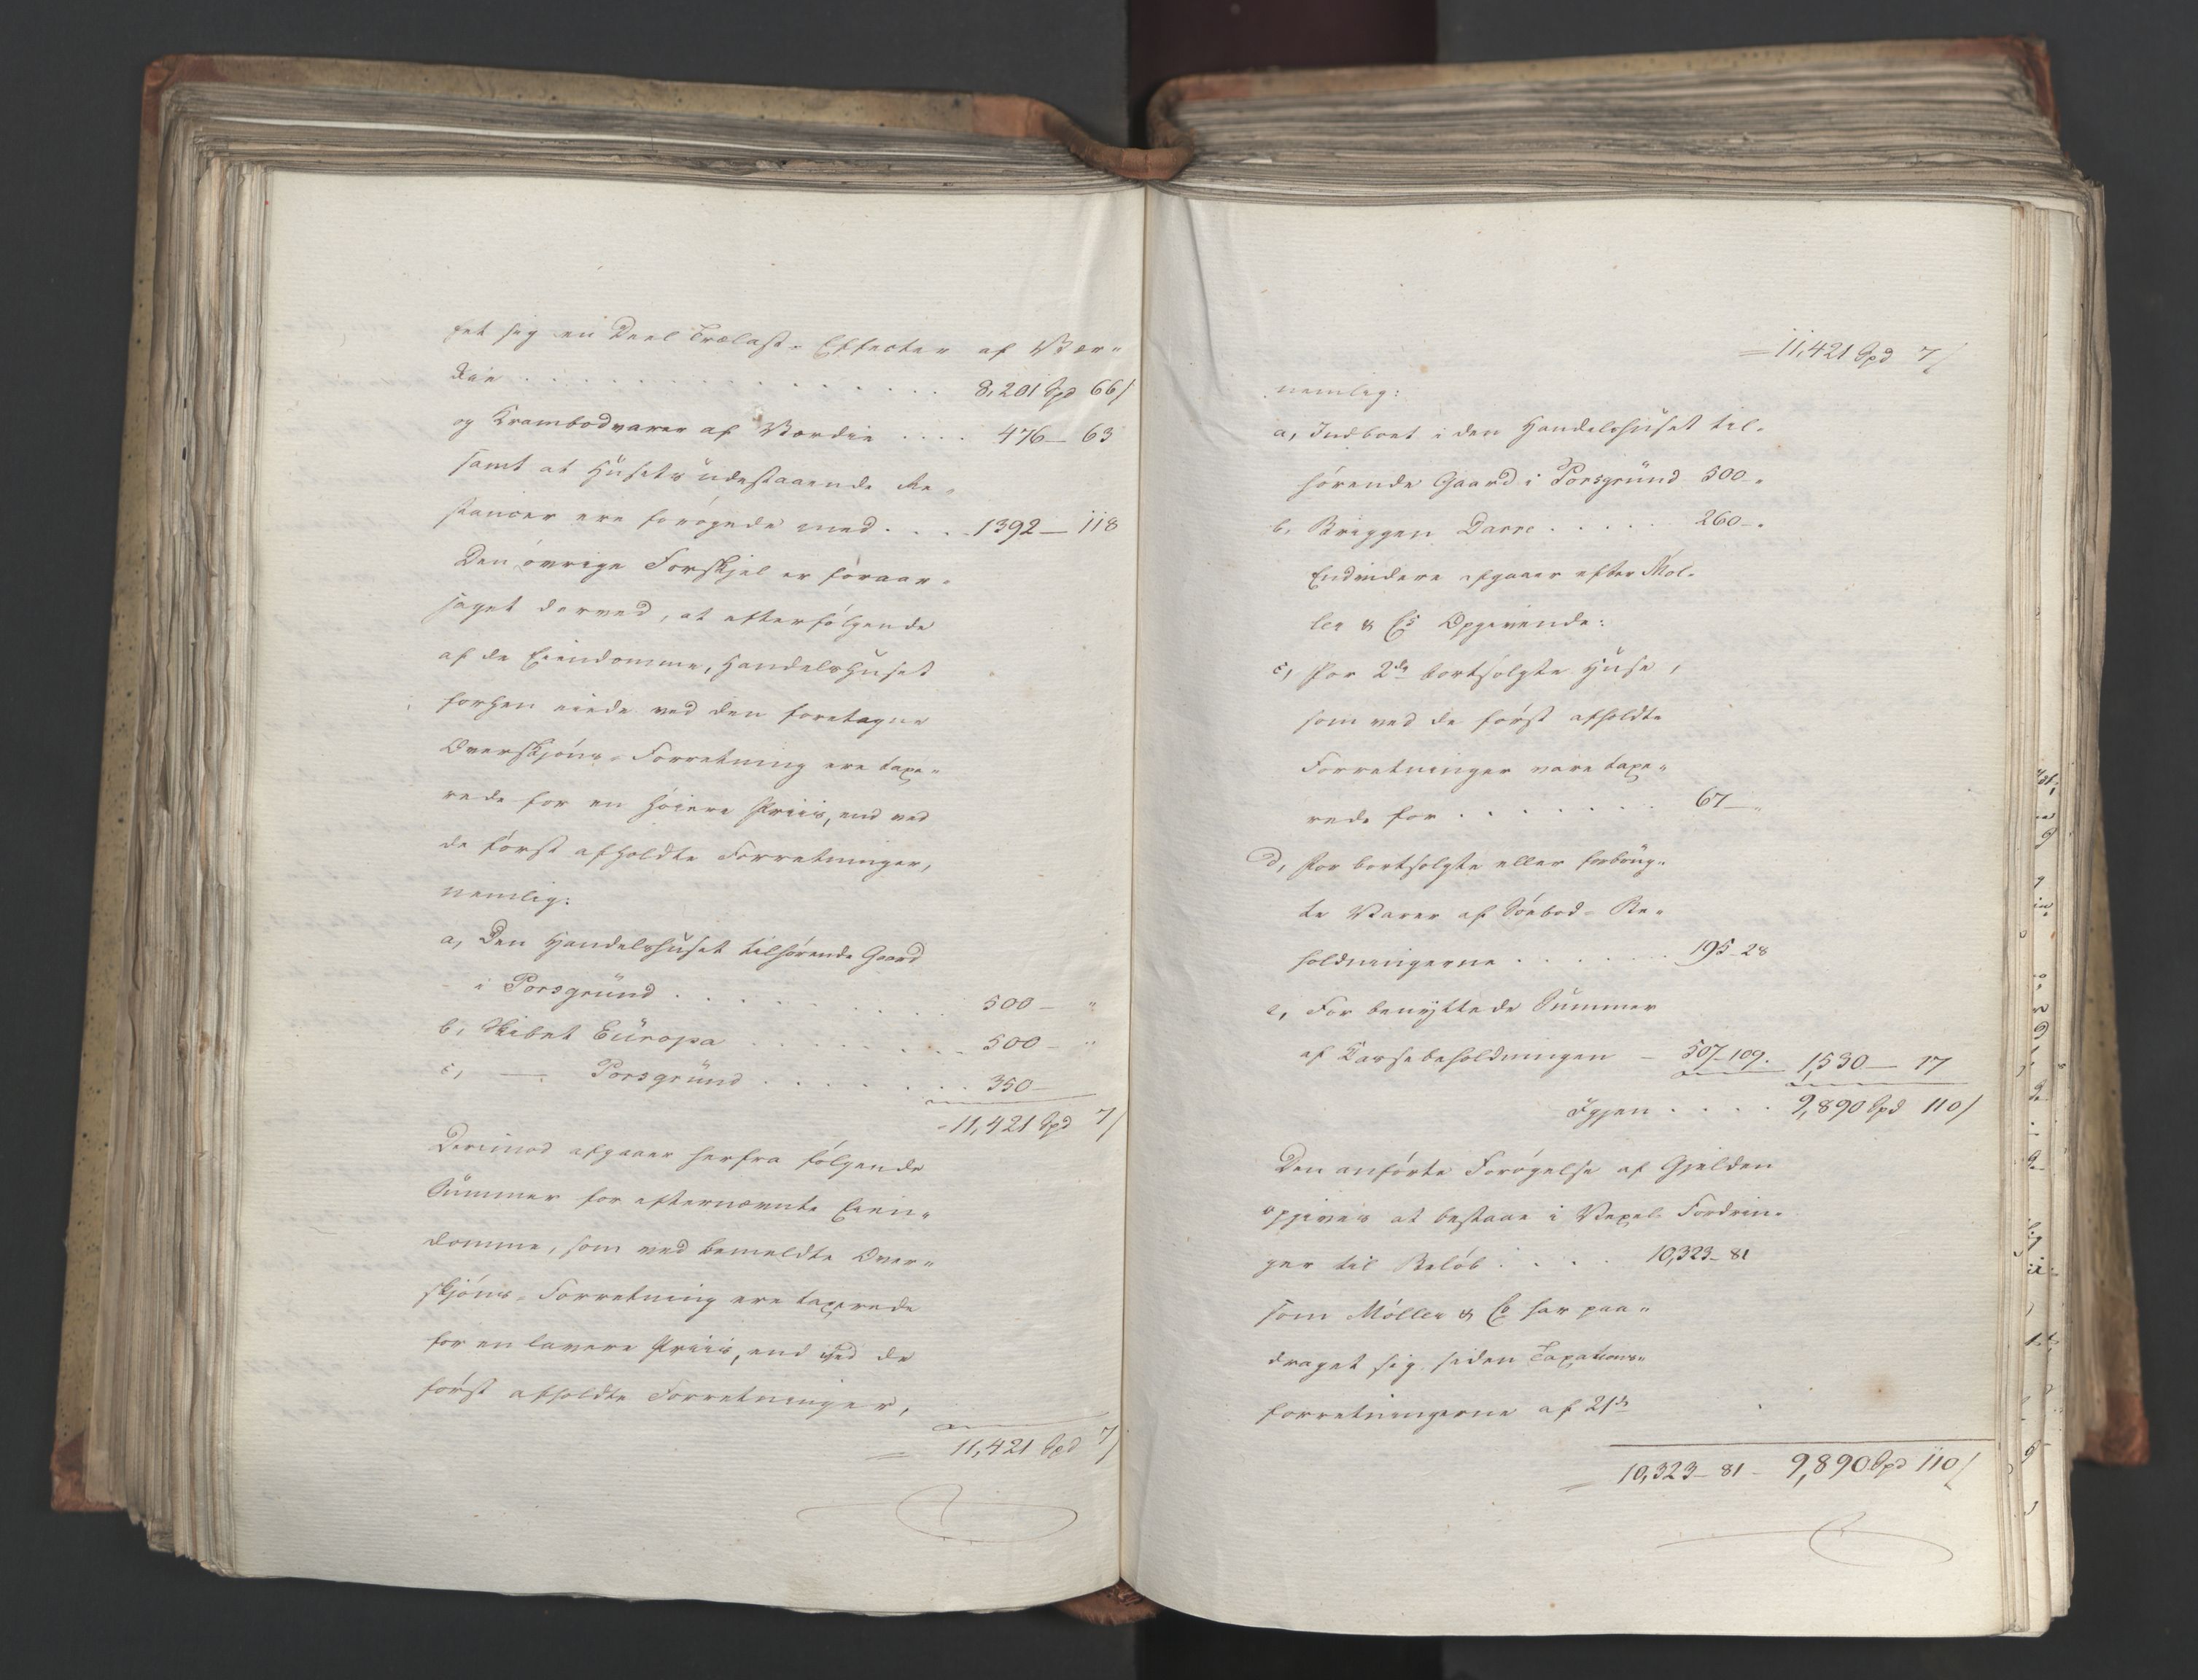 set sig en Deel Trælast-Effecter af Vær-
die . . . . . . 8,201 Spd 66 ß
og Krambodvarer af Værdie . . . . 476 — 63
samt at Husets udestaaende Re-
stancer ere forøgede med . . . . 1392 — 118
Den øvrige Forskjel er foraar-
saget derved, at efterfølgende
af de Eiendomme, Handelshuset
forhen eiede ved den foretagne
Overskjøns-Forretning ere taxe-
rede for en høiere Priis, end ved
de først afholdte Forretninger,
nemlig:
a, Den Handelshuset tilhørende Gaard
i Porsgrund . . . . . 500 — "
b, Skibet Europa . . . . . 500 — "
c, — Porsgrund . . . . . 350 —
11,421 Spd 7 ß
Derimod afgaaer herfra følgende
Summer for efternævnte Eien-
domme, som ved bemeldte Over-
skjøns-Forretning ere taxerede
for en lavere Priis, end ved de
først afholdte Forretninger,
= 11,421 Spd 7 ß
= 11,421 Spd 7 ß
nemlig:
a, Indboet i den Handelshuset til-
hørende Gaard i Porsgrund 500 - "
b, Briggen Darre . . . . . 260 - "
Endvidere afgaaer efter Møl-
ler & Cs Opgivende:
c, For 2de bortsolgte Huse,
som ved de først afholdte
Forretninger vare taxe-
rede for . . . . . . . 67 — "
d, For bortsolgte eller forbrug-
te Varer af Søebod-Be-
holdningerne . . . . . . 195 - 28
e, For benyttede Summer
af Cassebeholdningen — 507 - 109. 1,530 — 17
Igjen . . . . 9,890 Spd 110 ß
Den anførte Forøgelse af Gjelden
opgives at bestaae i Vexel-Fordrin-
ger til Beløb . . . . 10,323 - 81
som Møller & Co har paa-
draget sig siden Taxations-
forretningerne af 21de
= 10,323 - 81 - 9,890 Spd 110 ß